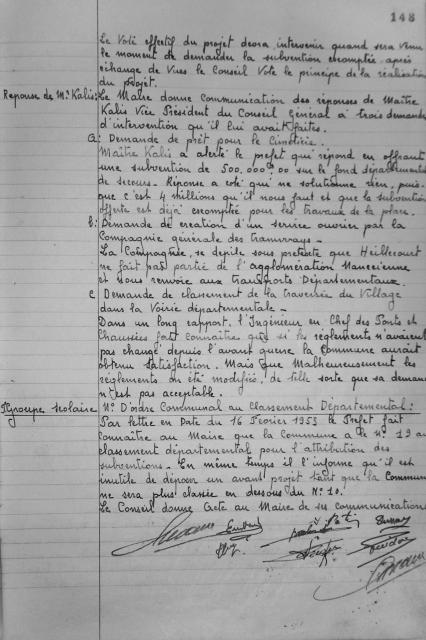 148
Le Vote effectif du projet devra intervenir quand sera venu
le moment de demander la subvention escomptée, après
échange de Vues le Conseil Vote le principe de la réalisation
du projet.
Reponse de Mr Kalis: Le Maire donne Communication des réponses de Maître
Kalis Vice Président du Conseil Général à trois demandes
d'intervention qu'il lui avait faites.
a: Demande de prêt pour le Cimetière.
Maître Kalis a alerté le préfet qui répond en offrant
une subvention de 500.000 00 sur le fond départemental
de secours. Réponse a coté qui ne solutionne rien, puis-
que c'est 4 millions qu'il nous faut et que la subvention
offerte est déjà escomptée pour les travaux de la place.
b: Demande de création d'un service ouvrier par la
Compagnie générale des tramways -
La Compagnie, se défile sous pretexte que Heillecourt
ne fait pas partie de l'agglomération Nanceienne
et nous renvoie aux transports Départementaux.
c Demande de classement de la traversée du Village
dans la Voirie départementale -
Dans un long rapport, l'Ingénieur en Chef des Ponts et
Chaussées fait connaître que si les règlements n'avaient
pas changé depuis l'avant guerre la Commune aurait
obtenu Satisfaction. Mais que Malheureusement les
règlements on été modifiés, de telle sorte que sa demande
n'est pas acceptable.
Groupe scolaire N° D'ordre Communal au Classement Départemental:
Par lettre en Date du 16 Février 1953 le Préfet fait
connaître au Maire que la Commune a le n° 19 au
classement départemental pour l'attribution des
subventions. En même temps il l'informe qu'il est
inutile de déposer un avant projet tant que la Commune
ne sera plus classée en dessous du N° 10.
Le Conseil donne Acte au Maire de ses communications